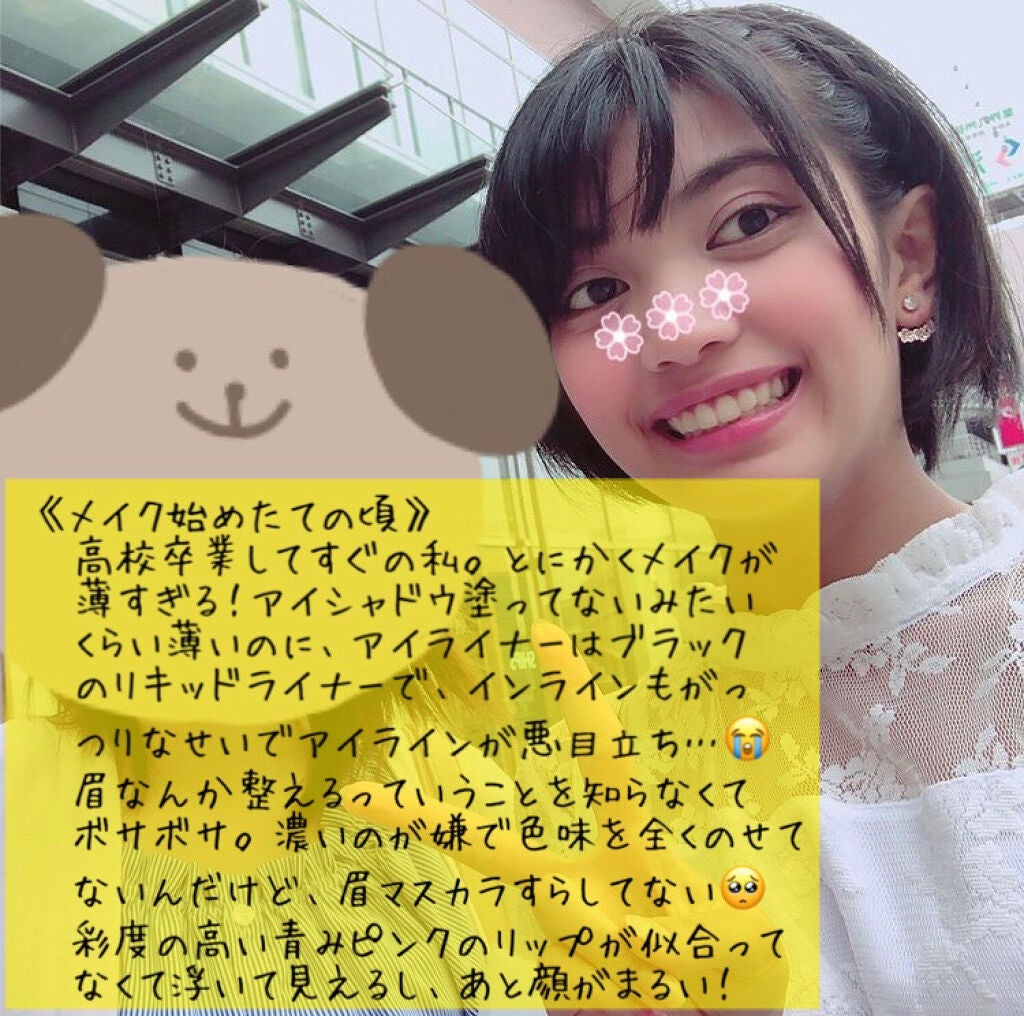 《メイク始めたての頃》
高校卒業してすぐの私。とにかくメイクが
薄すぎる!アイシャドウ塗ってないみたい
くらい薄いのに、アイライナーはブラック
のリキッドライナーで、インラインもがっ
つりなせいでアイラインが悪目立ち…😭
眉なんか整えるっていうことを知らなくて
ボサボサ。濃いのが嫌で色味を全くのせて
ないんだけど、眉マスカラすらしてない🥺
彩度の高い青みピンクのリップが似合って
なくて浮いて見えるし、あと顔がまるい!